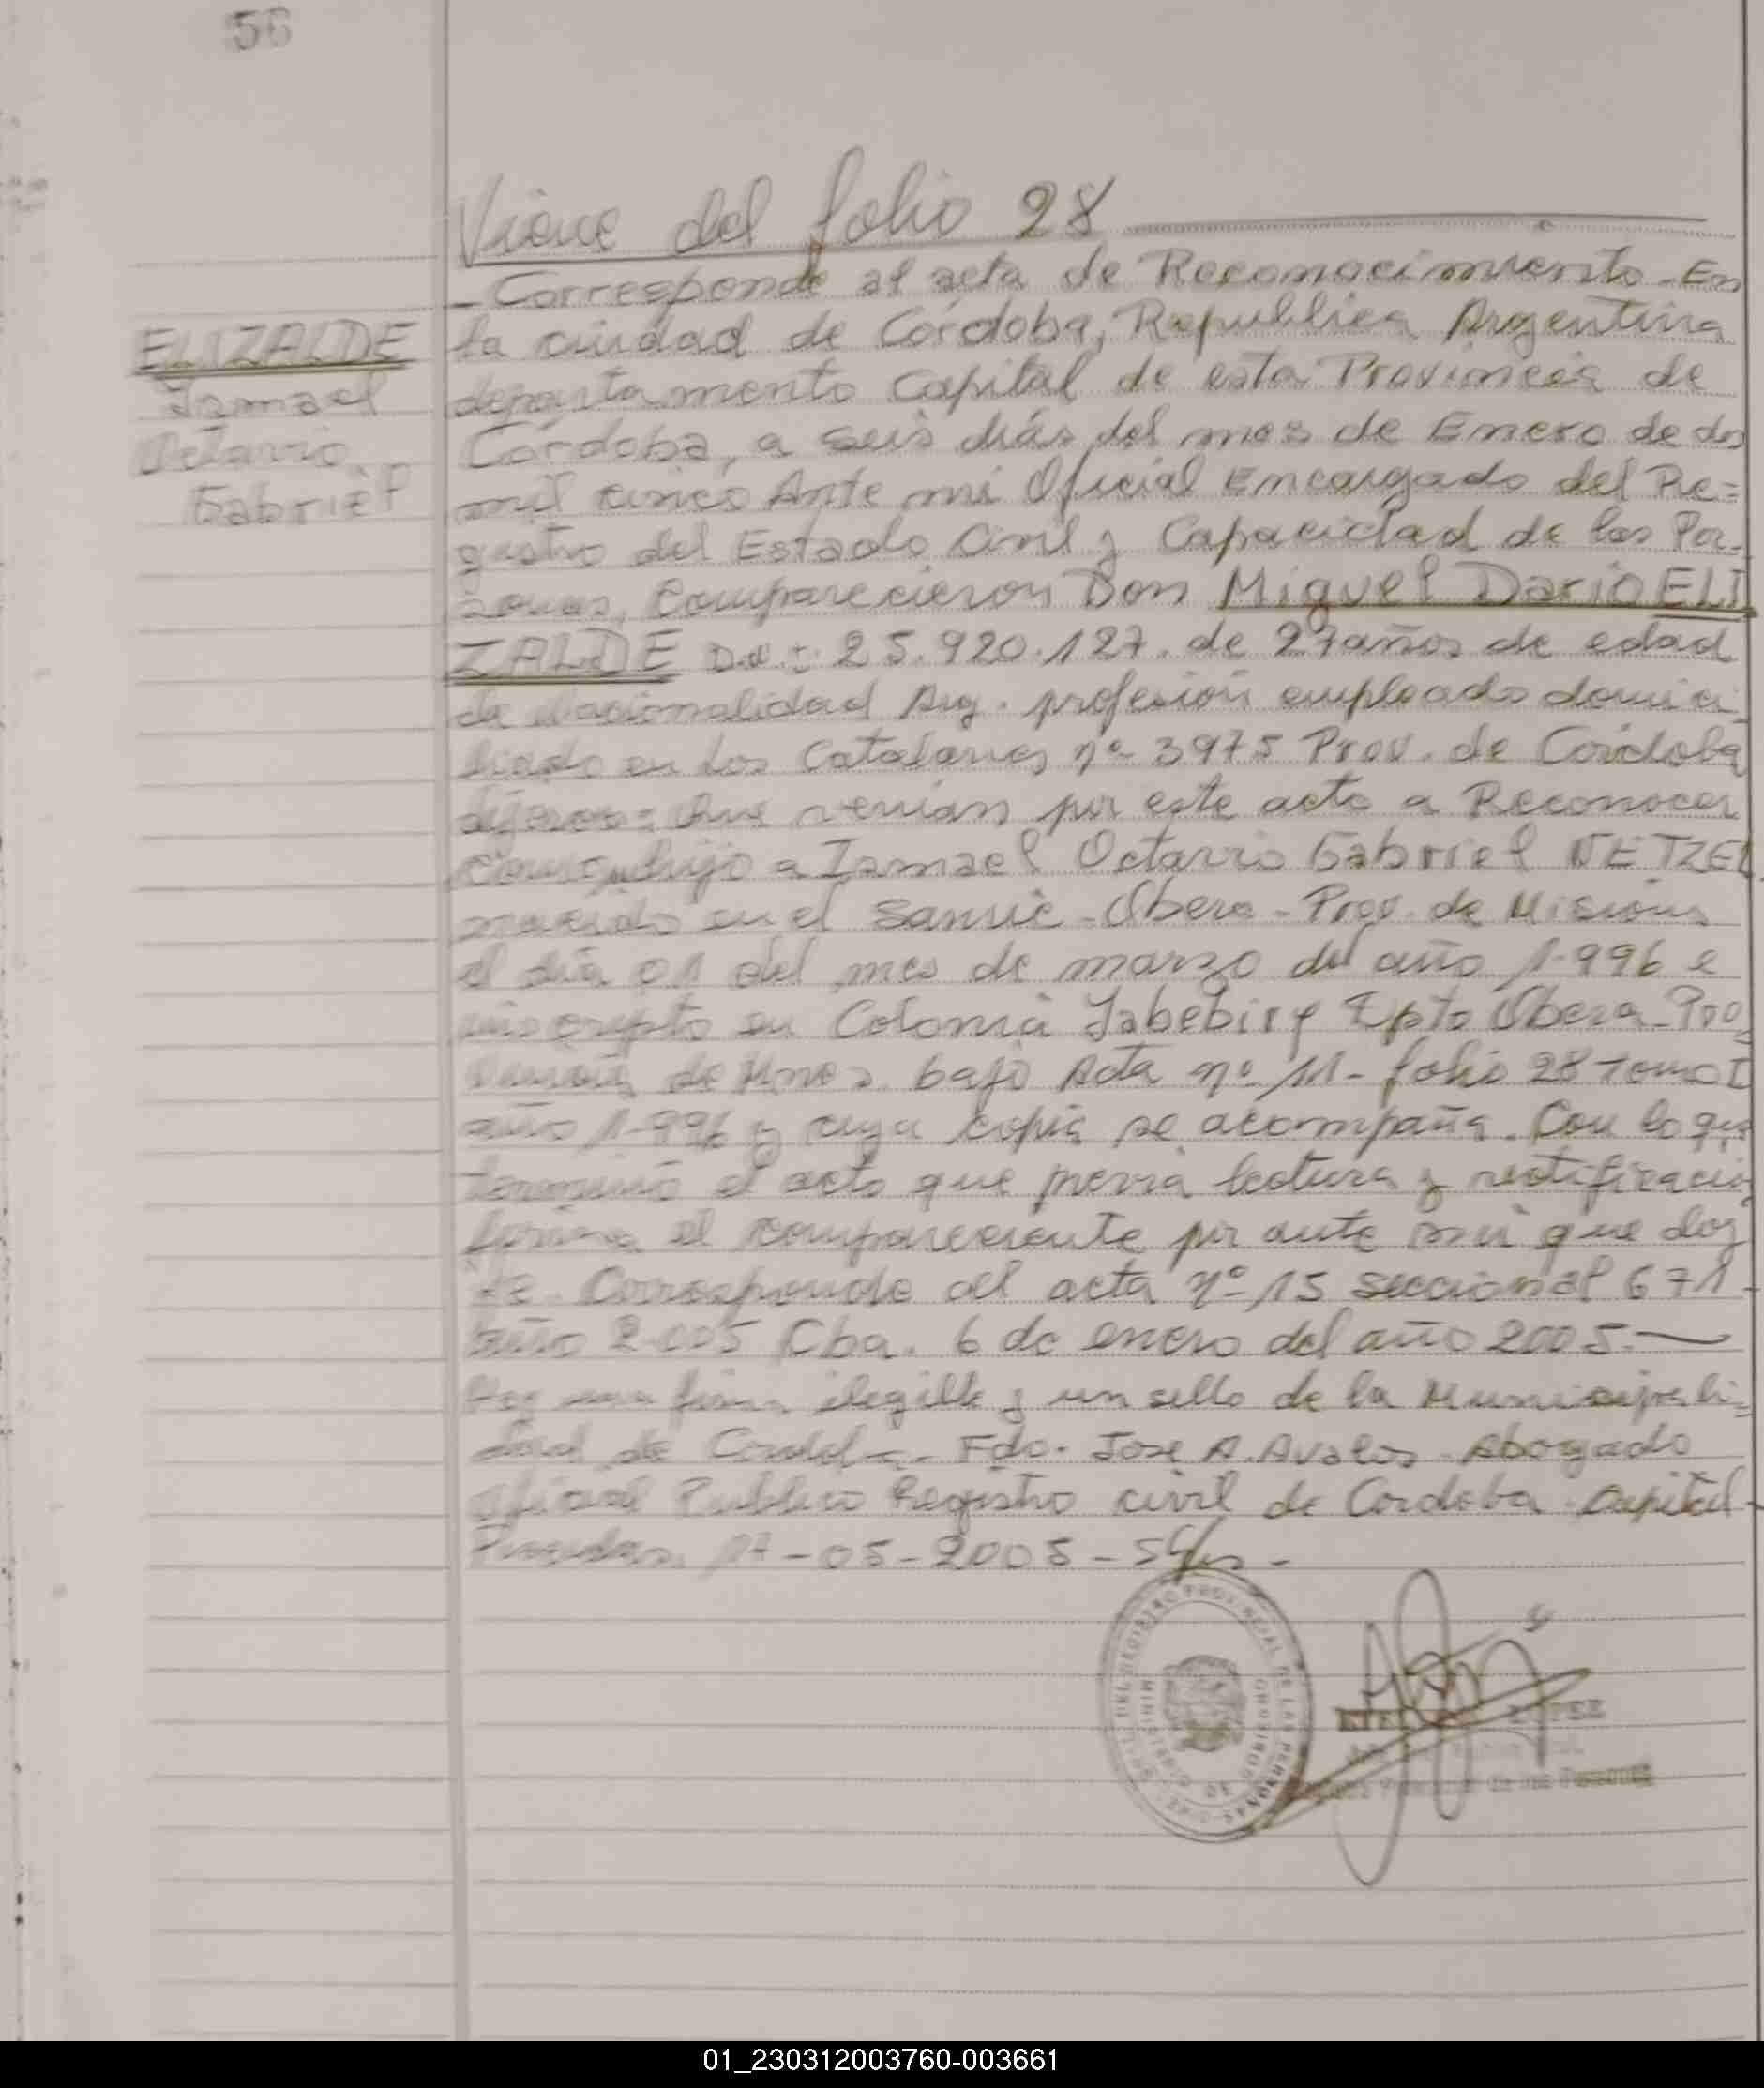 56
Viene del folio 28
- Corresponde al acta de Reconocimiento - En
ELIZALDE
la ciudad de Córdoba, Republica Argentina
Ismael
departamento Capital de esta Provincia de
Octavio
Córdoba, a seis dias del mes de Enero de dos
Gabriel
mil cinco Ante mi Oficial Encargado del Re=
gistro del Estado Civil y Capacidad de las Per-
sonas, Comparecieron Don Miguel Dario ELI
ZALDE 25.920.127. de 27 años de edad
de Nacionalidad Arg. profesión empleado domici-
liado en Los Catalanes nº 3975 Prov. de Córdoba
dijeron: Que venian por este acto a Reconocer
como hijo a Ismael Octavio Gabriel NETZEL
nacido en el Samic - Obera - Prov. de Misiones
el dia 01 del mes de marzo del año 1.996 e
inscripto en Colonia Yabebiry Dpto Obera - Pro
vincia de Mnes. bajo Acta nº 11 - folio 28 tomo I
año 1.996 y cuya copia se acompaña. Con lo que
termino el acto que previa lectura y ratificacio
firma el compareciente por ante mi que doy
fe. Corresponde al acta nº 15 seccional 671 -
año 2.005 Cba. 6 de enero del año 2005.-
Hay una firma ilegible y un sello de la Municipali=
dad de Cordoba - Fdo. Jose A. Avalos - Abogado
Oficial Publico Registro civil de Cordoba - Capital -
Posadas. 17 - 05 - 2005 -
REGISTRO PROVINCIAL DE LAS PERSONAS
MINISTERIO DE GOBIERNO
de las Personas
01_230312003760-003661